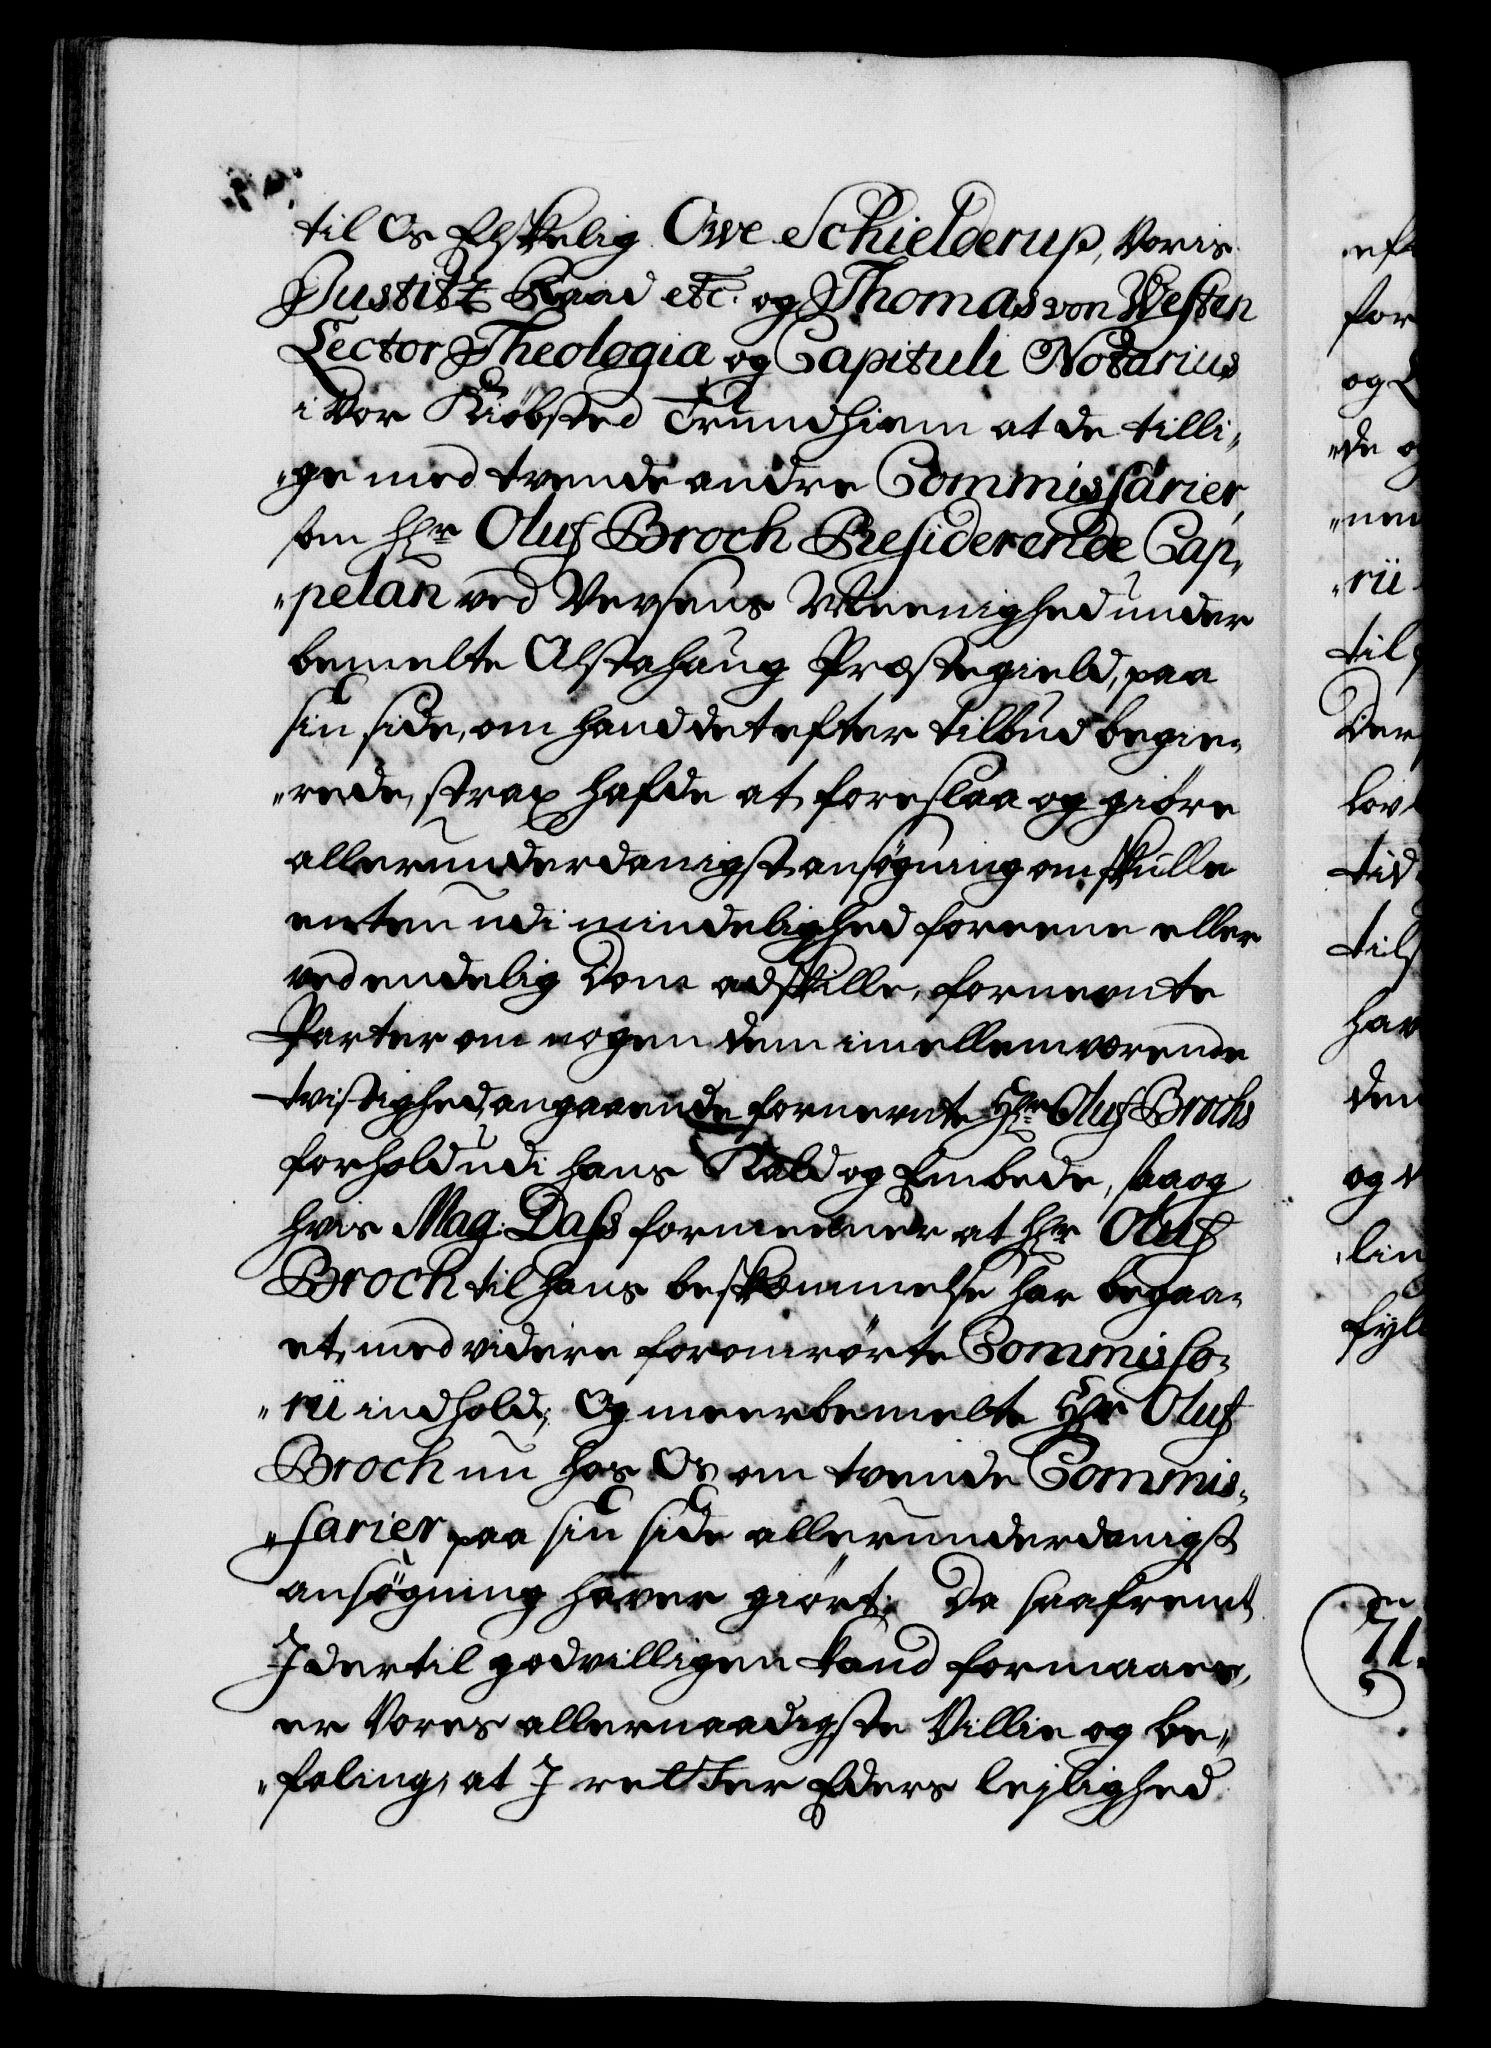 til Os Elskelig Owe Schielderup, Voris
Justitz Raad etc. og Thomas von Westen
Lector Theologia og Capituli Notarius
i Vor Kiøbsted Trundhiem at de tilli„
„ge med tvende andre Commissarier,
som Hr Oluf Broch Residerende Cap„
„pelan ved Vefsens Meenighed under
bemelte Alstahaug Præstegield, paa
sin side, om hand det efter tilbud begie„
„rede, strax hafde at foreslaa og giøre
allerunderdanigst ansøgning om skulle
enten udi mindelighed foreene eller
ved endelig Dom adskille, fornevnte
Parter om nogen dem imellem værende
tvistighed, angaaende fornevnte Hr Oluf Brochs
forhold udi hans Kald og Embede, saa og
hvis Mag: Dass formeener at Hr Oluf
Broch til hans beskæmmelse har begaa„
et, med videre foromrørte Commisso„
„rii indhold; Og meerbemelte Hr Oluf
Broch nu hos Os om tvende Commis„
„sarier paa sin side allerunderdanigst
ansøgning haver giort; Da saafremt
I dertil godvilligen kand formaaes,
er Vores allernaadigste Villie og be„
„faling, at I retter Eders lejlighed